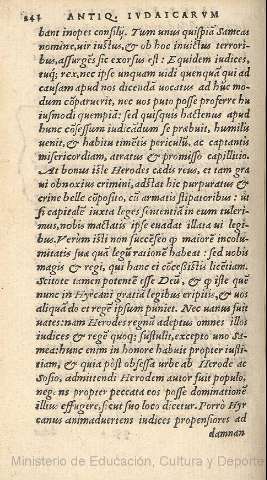 242 ANTIQ. IVDAICARVM
bant inopes consilij. Tum unus quispiã Sameas
nomine, uir iustus, & ob hoc inuictus terrori-
bus, assurgẽs sic exorsus est: Equidem iudices,
tuq; rex, nec ipse unquam uidi quenquã qui ad
causam apud nos dicenda uocatus ad hũc mo-
dum cõparuerit, nec uos puto posse proferre hu
iusmodi quempiã: sed quisquis hactenus apud
hunc cõsessum iudicãdum se præbuit, humilis
uenit, & habitu timẽtis periculũ, ac captantis
misericordiam, atratus & promisso capillitio.
At bonus iste Herodes cædis reus, et tam gra
ui obnoxius crimini, adstat hic purpuratus &
crine belle cõposito, cũ armatis stipatoribus: ut
si capitalẽ iuxta leges sententiã in eum tuleri-
mus, nobis mactatis ipse euadat illata ui legi-
bus. Verũm isti non succẽseo q̃ maiorẽ incolu-
mitatis suæ quã legũ rationẽ habeat: sed uobis
magis & regi, qui hanc ei cõcessistis licẽtiam.
Scitote tamen potentẽ esse Deũ, & q̃ iste quẽ
nunc in Hyrcani gratiã legibus eripitis, & uos
aliquãdo et regẽ ipsum puniet. Nec uanus fuit
uates: nam Herodes regnũ adeptus omnes illos
iudices & regẽ quoq; sustulit, excepto uno Sa-
mea: hunc enim in honore habuit propter iusti-
tiam, & quia post obsessa urbe ab Herode ac
Sosio, admittendi Herodem autor fuit populo,
neg: ns propter peccata eos posse dominationẽ
illius effugere, sicut suo loco dicetur. Porrò Hyr
canus animaduertens iudices propensiores ad
damnan
Ministerio de Educación, Cultura y Deporte